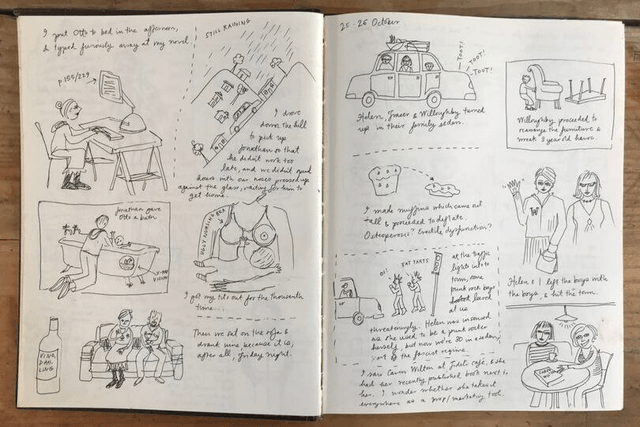 I put Otto to bed in the afternoon,
& typed furiously away at my novel.
p 155/229
STILL RAINING
I drove
down the hill
to pick up
Jonathan so that
he didn't work too
late, and we didn't spend
hours with our noses pressed up
against the glass, waiting for him to
get home.
Jonathan gave
Otto a bath
UGLY NURSING BRA
I got my tits out for the thousandth
time...
VINO,
DAH-
LING
Then we sat on the sofa &
drank wine, because it is,
after all, Friday night.
25-26 October
TOOT!
TOOT!
TOOT!
Helen, Fraser & Willoughby turned
up in their family sedan.
Willoughby proceeded to
rearrange the furniture &
wreak 3 year old havoc.
I made muffins which came out
tall & proceeded to deflate.
Osteoporosis? Erectile dysfunction?
OI!
FAT TARTS
at the traffic
lights into
town, some
punk work boys
leered
at us
threateningly. Helen was incensed
as she used to be a punk rocker
herself, but now we're 30 in a sedan,
part of the fascist regime.
Helen & I left the boys with
the boys, & hit the town.
I saw Cairn Wilton at Jude's café, & she
had her recently published book next to
her. I wonder whether she takes it
everywhere as a prop/marketing tool.